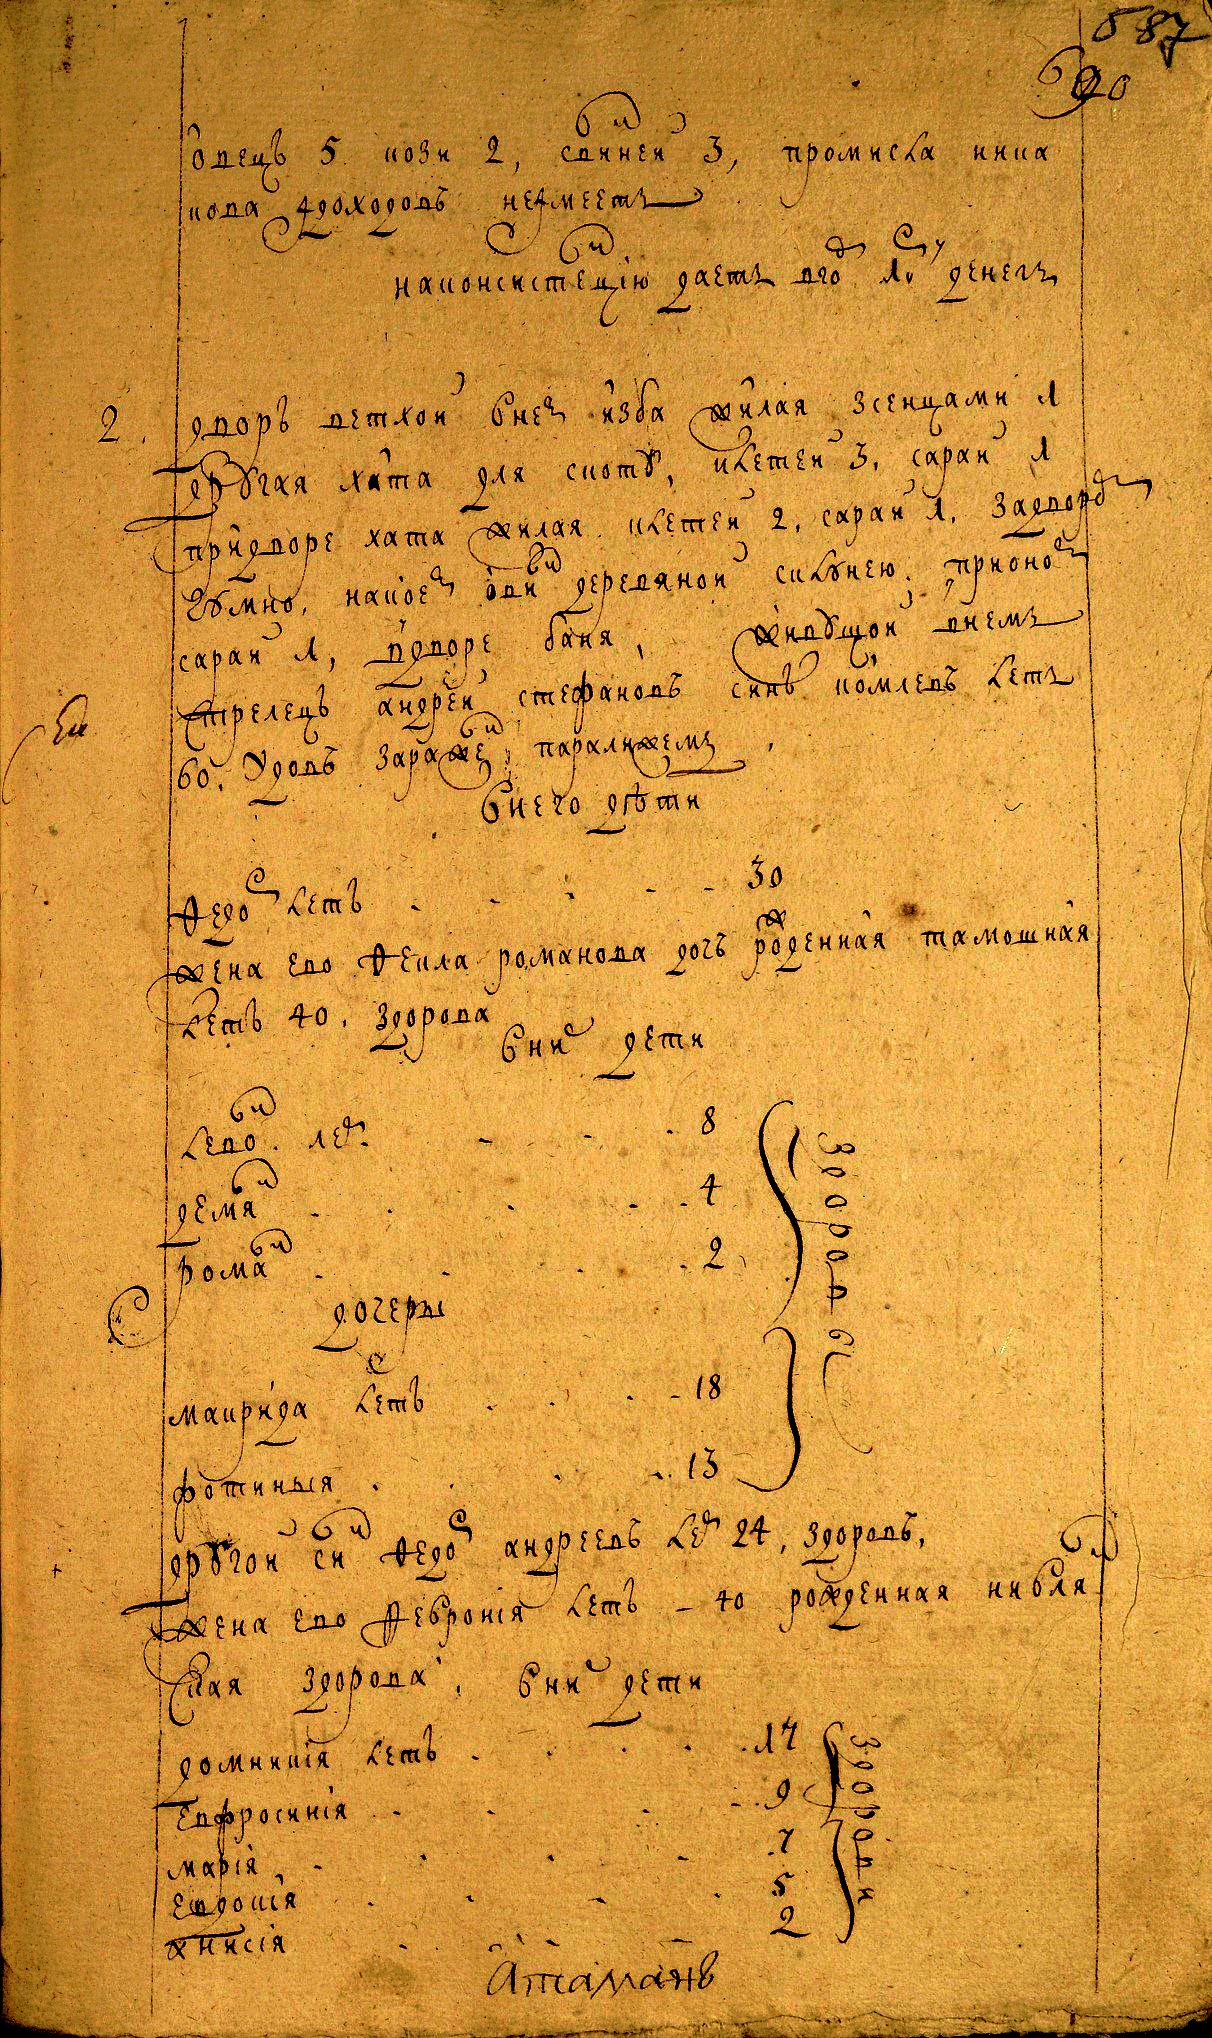 587
690
овецъ 5 кози 2, свиней 3, промисла ника
кова ѝ доходовъ неимеетъ
наконсистенцію даетъ вгод 1 р денегъ
2. дворъ ветхой внем изба жилая зсенцами 1
другая хата для скоту, клетей 3, сарай 1
придворе хата жилая клетей 2, сарай 1, задворо
гумно, накоем овин деревяной сиклунею прионом
сарай 1, вдворе баня, живущой внемъ
стрелецъ андрей стефановъ синъ комлевъ летъ
60, удовъ заражен паралижемъ
Внего дѣти
Ѳедор летъ 30
жена ево Ѳекла романова дочъ рожденная тамошная
летъ 40, здорова
Вних дети
Левон лет 8
демян 4
роман 2
дочеры
маврида летъ 18
фотиныя 13
здорови
другой син Ѳедор андреевъ лет 24, здоровъ,
жена ево Ѳевронія летъ 40 рожденная никля
ская здорова, Вних дети
домникія летъ 17
Евфросинія 9
марія 7
Евдокія 5
анисія 2
здорови
Атаманъ